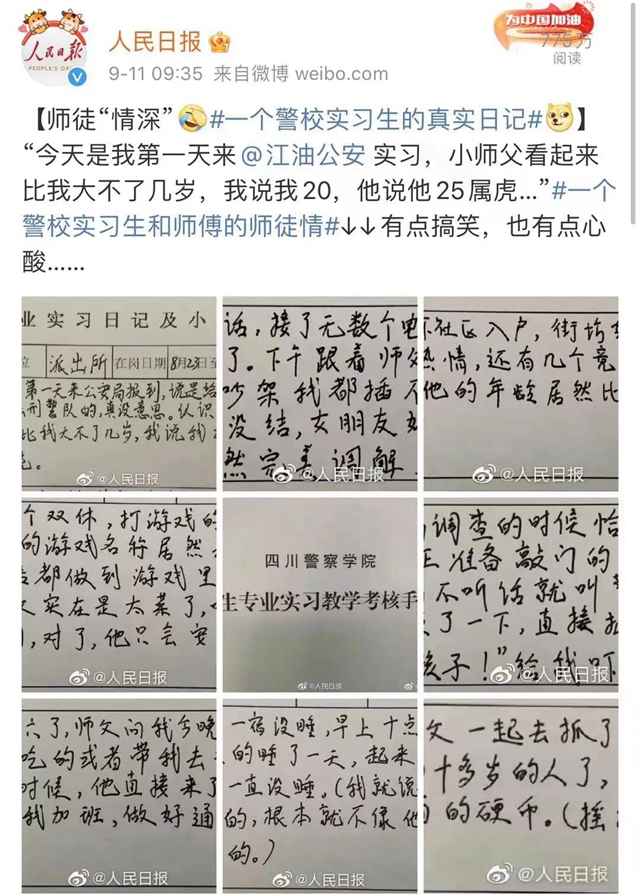 人民日报
PEOPLE'S DA
人民日报
为中国加油
775万
阅读
9-11 09:35 来自微博 weibo.com
【师徒“情深”🤣#一个警校实习生的真实日记#】
“今天是我第一天来@江油公安 实习，小师父看起来
比我大不了几岁，我说我20，他说他25属虎...”#一个
警校实习生和师傅的师徒情#↓↓有点搞笑，也有点心
酸……
业实习日记及小
位 派出所 在岗日期 8月23日至
第一天来公安局报到，说是给
刑警队的，真没意思。认识
比我大不了几岁，我说我
@人民日报
话，接了无数个电
了。下午跟着师父
吵架我都插不
没结，女朋友如
然完美调解
@人民日报
社区入户，街坊
热情，还有几个竟
他的年龄居然比
@人民日报
个双休，打游戏的
的游戏名称居然
都做到游戏里
实在是太菜了，
，对了，他只会安
@人民日报
四川警察学院
生专业实习教学考核手
@人民日报
调查的时候恰
正准备敲门的
不听话就叫
了一下，直接
孩子！”给我吓
@人民日报
六了，师父问我今晚
吃的或者带我去
时候，他直接来了
我加班，做好通
@人民日报
一宿没睡，早上十点
的睡了一天，起来
一直没睡。（我就说
的，根本就不像他
的。）
@人民日报
父一起去抓了
十多岁的人了，
的硬币。（摇
@人民日报